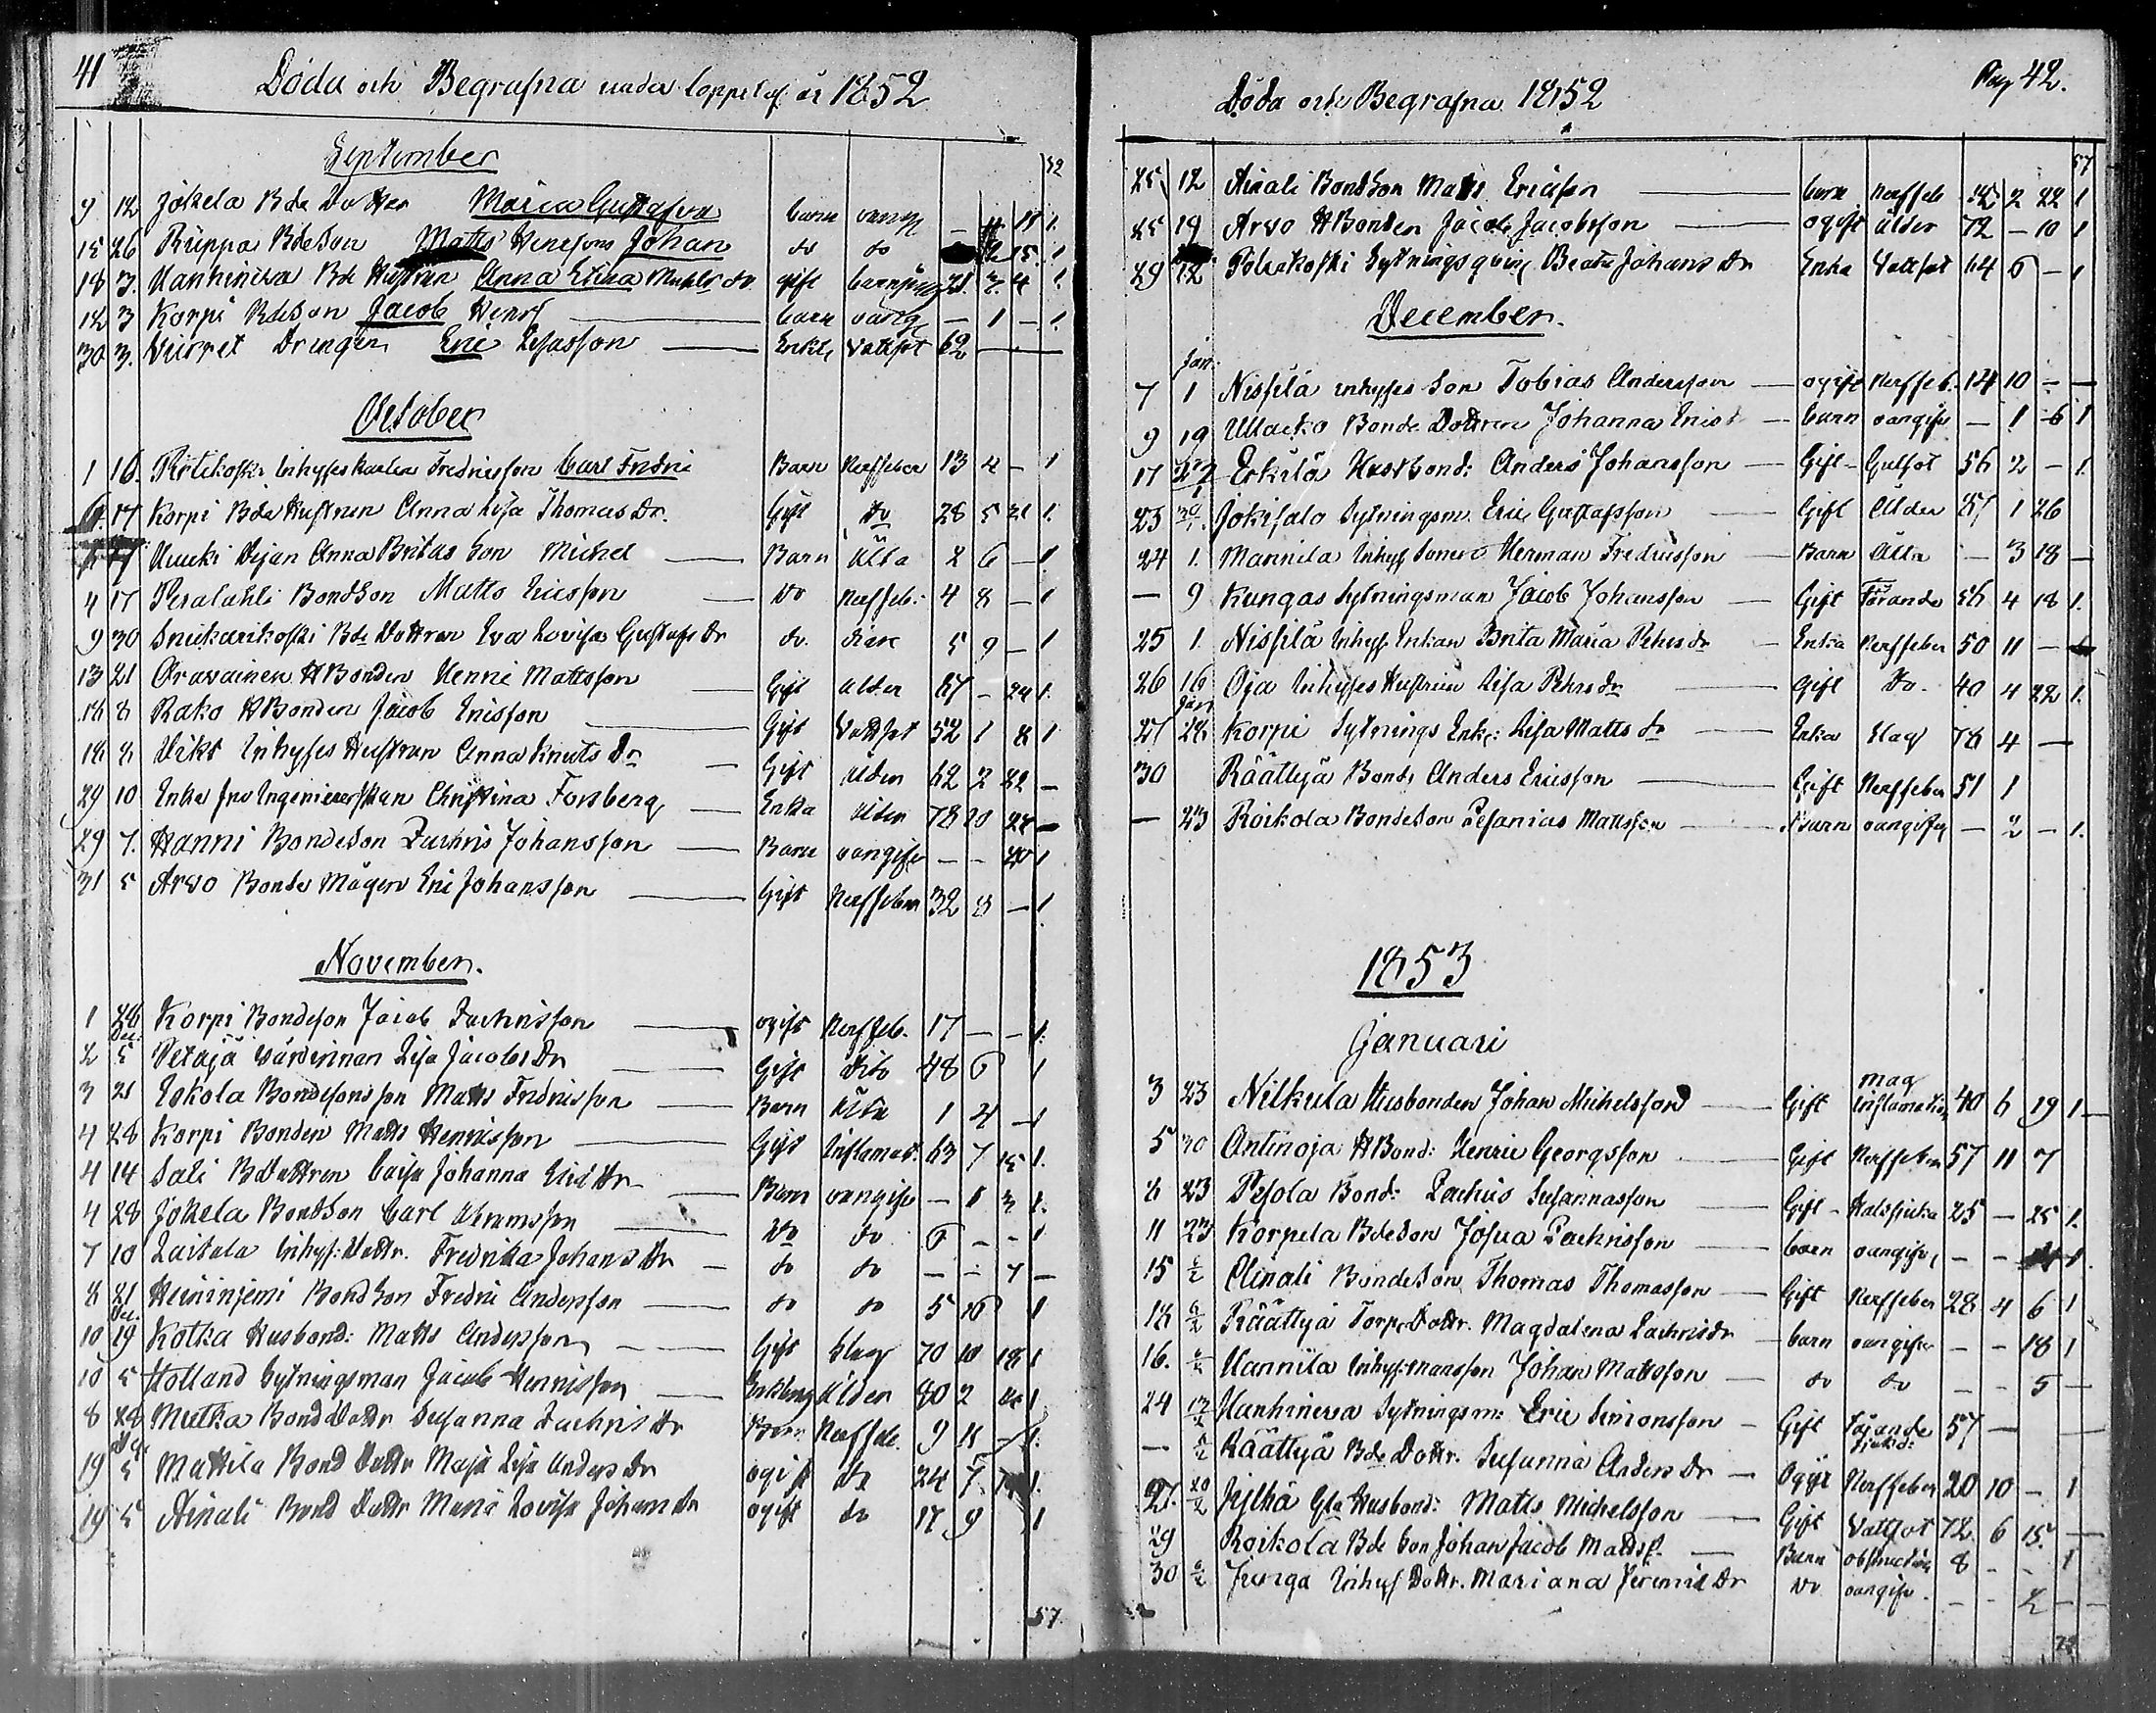 41
Döda och Begrafna under loppet af år 1852
September
32
9 12 Jokela Bde Dotter Maria Gustafva barn oangif 11 1.
15 26 Ruppa Bdeson Matts Henrsons Johan do do 15. 1
18 3. Kanhineva Bde Hustrun Anna Erica gift barnsäng 21. 7. 4 1.
12 3 Korpi Bdeson Jacob Henrss barn oangif — 1 — 1.
30 3. Drengen Eric Esasson Enkl. Vattsot 62 —
October
1 16. Inhyses karlen Fredricsson Carl Fredric Barn Nerffeber 13 4 — 1
17 Korpi Bde Hustrun Anna Lisa Thomas Dr. Gift do 28 5 21 1.
Pijan Anna Britas Son Michel Barn Älta 2 6 — 1
4 17 Peralahti Bondson Matts Ericsson do nerffeb: 4 8 — 1
9 30 Snickarikoski Bde Dottren Eva Lovisa Gustafs Dr do. 5 9 — 1
13 21 Oravainen HBonden Henric Mattsson Gift Ålder 87 — 24 1.
18 8 Rako HBonden Jacob Ericsson Gift Vattsot 52 1 8 1
18 8 Inhyses Hustrun Anna Knuts Dr Gift Ålder 62 2 22 —
29 10 Enke fru Ingenieurskan Christina Forsberg Enka Ålder 78 10 24 —
29 7. Hanni Bondeson Zachris Johansson Barn oangifv — — 20 1
31 5 Arvo Bonde Mågen Eric Johansson Gift Nerffeber 32 8 — 1.
November.
1 26 Korpi Bondeson Jacob Zachrisson ogift Nerffeb. 17 — — 1.
Dec.
2 5 Petäjä värdinnan Lisa Jacobs Dr Gift dito 48 6 1
3 21 Eskola Bondesonsson Matts Fredricsson Barn Älta 1 4 — 1
4 28 Korpi Bonden Matts Henricsson Gift Inflamat: 63 7 15 1.
4 14 Sali BDottren Caisa Johanna Barn oangifv — 1 3 1.
4 28 Jokela Bondson Carl Abramsson do do 6 — — 1
7 10 Laitala Inhys: Dottr. Fredrika Johans Dr — do do — — 7 —
8 21 Heininjemi Bondson Fredric Andersson do do 5 10 1
Dec.
10 19 Kotka Husbond: Matts Andersson Gift Slag 70 10 18 1
10 5 Holland Sytningsman Jacob Henricsson Enkling Ålder 80 2 1
8 28 Mutka Bond Dottr Susanna Zachris Dr Barn Nerffeb. 9 11 — 1.
Dec
19 5 Mattila Bond Dottr Maja Lisa Anders Dr ogift do 24 7 1.
19 5 Ainali Bond Dottr Maria Lovisa Johans Dr ogift do 17 9 1
57.
Pag 42.
Döda och Begrafna 1852
57
25 12 Ainali Bondson Matts Ericsson barn nerffeb 12 2 22 1
25 19 Arvo HBonden Jacob Jacobsson ogift ålder 72 — 10 1
29 12 Polsokoski Sytningsqvinn Beata Johans Dr Enka Vattsot 64 6 — 1
December.
Jan.
7 1 Nissilä inhyses Son Tobias Andersson — ogift Nerffeb. 14 10 — —
9 19 Ullacko Bonde Dottren Johanna — barn oangifv — 1 6 1
17 27/1 Erkilä Husbond: Anders Johansson — Gift Gulsot 56 2 — 1.
23 30/1. Jokisalo Sytningsm. Eric Gustafsson Gift Ålder 87 1 26
24 1. Mannila Inhys Sonen Herman Fredricsson — Barn Älta — 3 18 —
— 9 Kungas Sytningsman Jacob Johansson — Gift Tärande 56 4 18 1.
25 1. Nissilä Inhys Enkan Brita Maria Pehrs dr — Enka Nerffeber 50 11 —
26 16 Oja Inhyses Hustrun Lisa Pehrs dr gift do. 40 4 22 1.
Jan
27 28 Korpi Sytnings Enk: Lisa Matts dr Enka Slag 78 4 —
30 Räättyä Bond, Anders Ericsson Gift Nerffeber 51 1
— 23 Roikola Bondeson Esanias Mattsson Barn oangifv — 2 — 1.
1853
Januari
3 23 Nilkula Husbonden Johan Michelsson Gift mag Inflamation 40 6 19 1 —
5 30 Antinoja HBond: Henric Georgsson Gift Nerffeber 57 11 7
8 23 Pesola Bond: Zachris Susannasson Gift Halssjuka 25 — 25 1.
11 23 Korpela Bdeson Josua Zachrisson barn oangifv — — 1.
15 6/2 Ainali Bondeson Thomas Thomasson Gift Nerffeber 28 4 6 1
18 6/2 Räättyä Torp: Dottr. Magdalena Zachris Dr barn oangifv — — 18 1
16. 6/2 Hannila Inhys: mansson Johan Mattsson do do — — 5 —
24 13/2 Kanhineva Sytningsm: Eric Simonsson Gift Tärande sjukd: 57 —
— 6/2 Räättyä Bde Dottr. Susanna Anders Dr Ogift Nerffeber 20 10 — 1
27. 20/2 Jylhä Gla Husbond: Matts Michelsson Gift Vattsot 72 6 15. —
29 Roikola Bde Son Johan Jacob Mattss. Barn obstruction 8 — — 1
30 6/2 Junga Inhys Dottr. Mariana Jeremia Dr do oangifv. — — 2 —